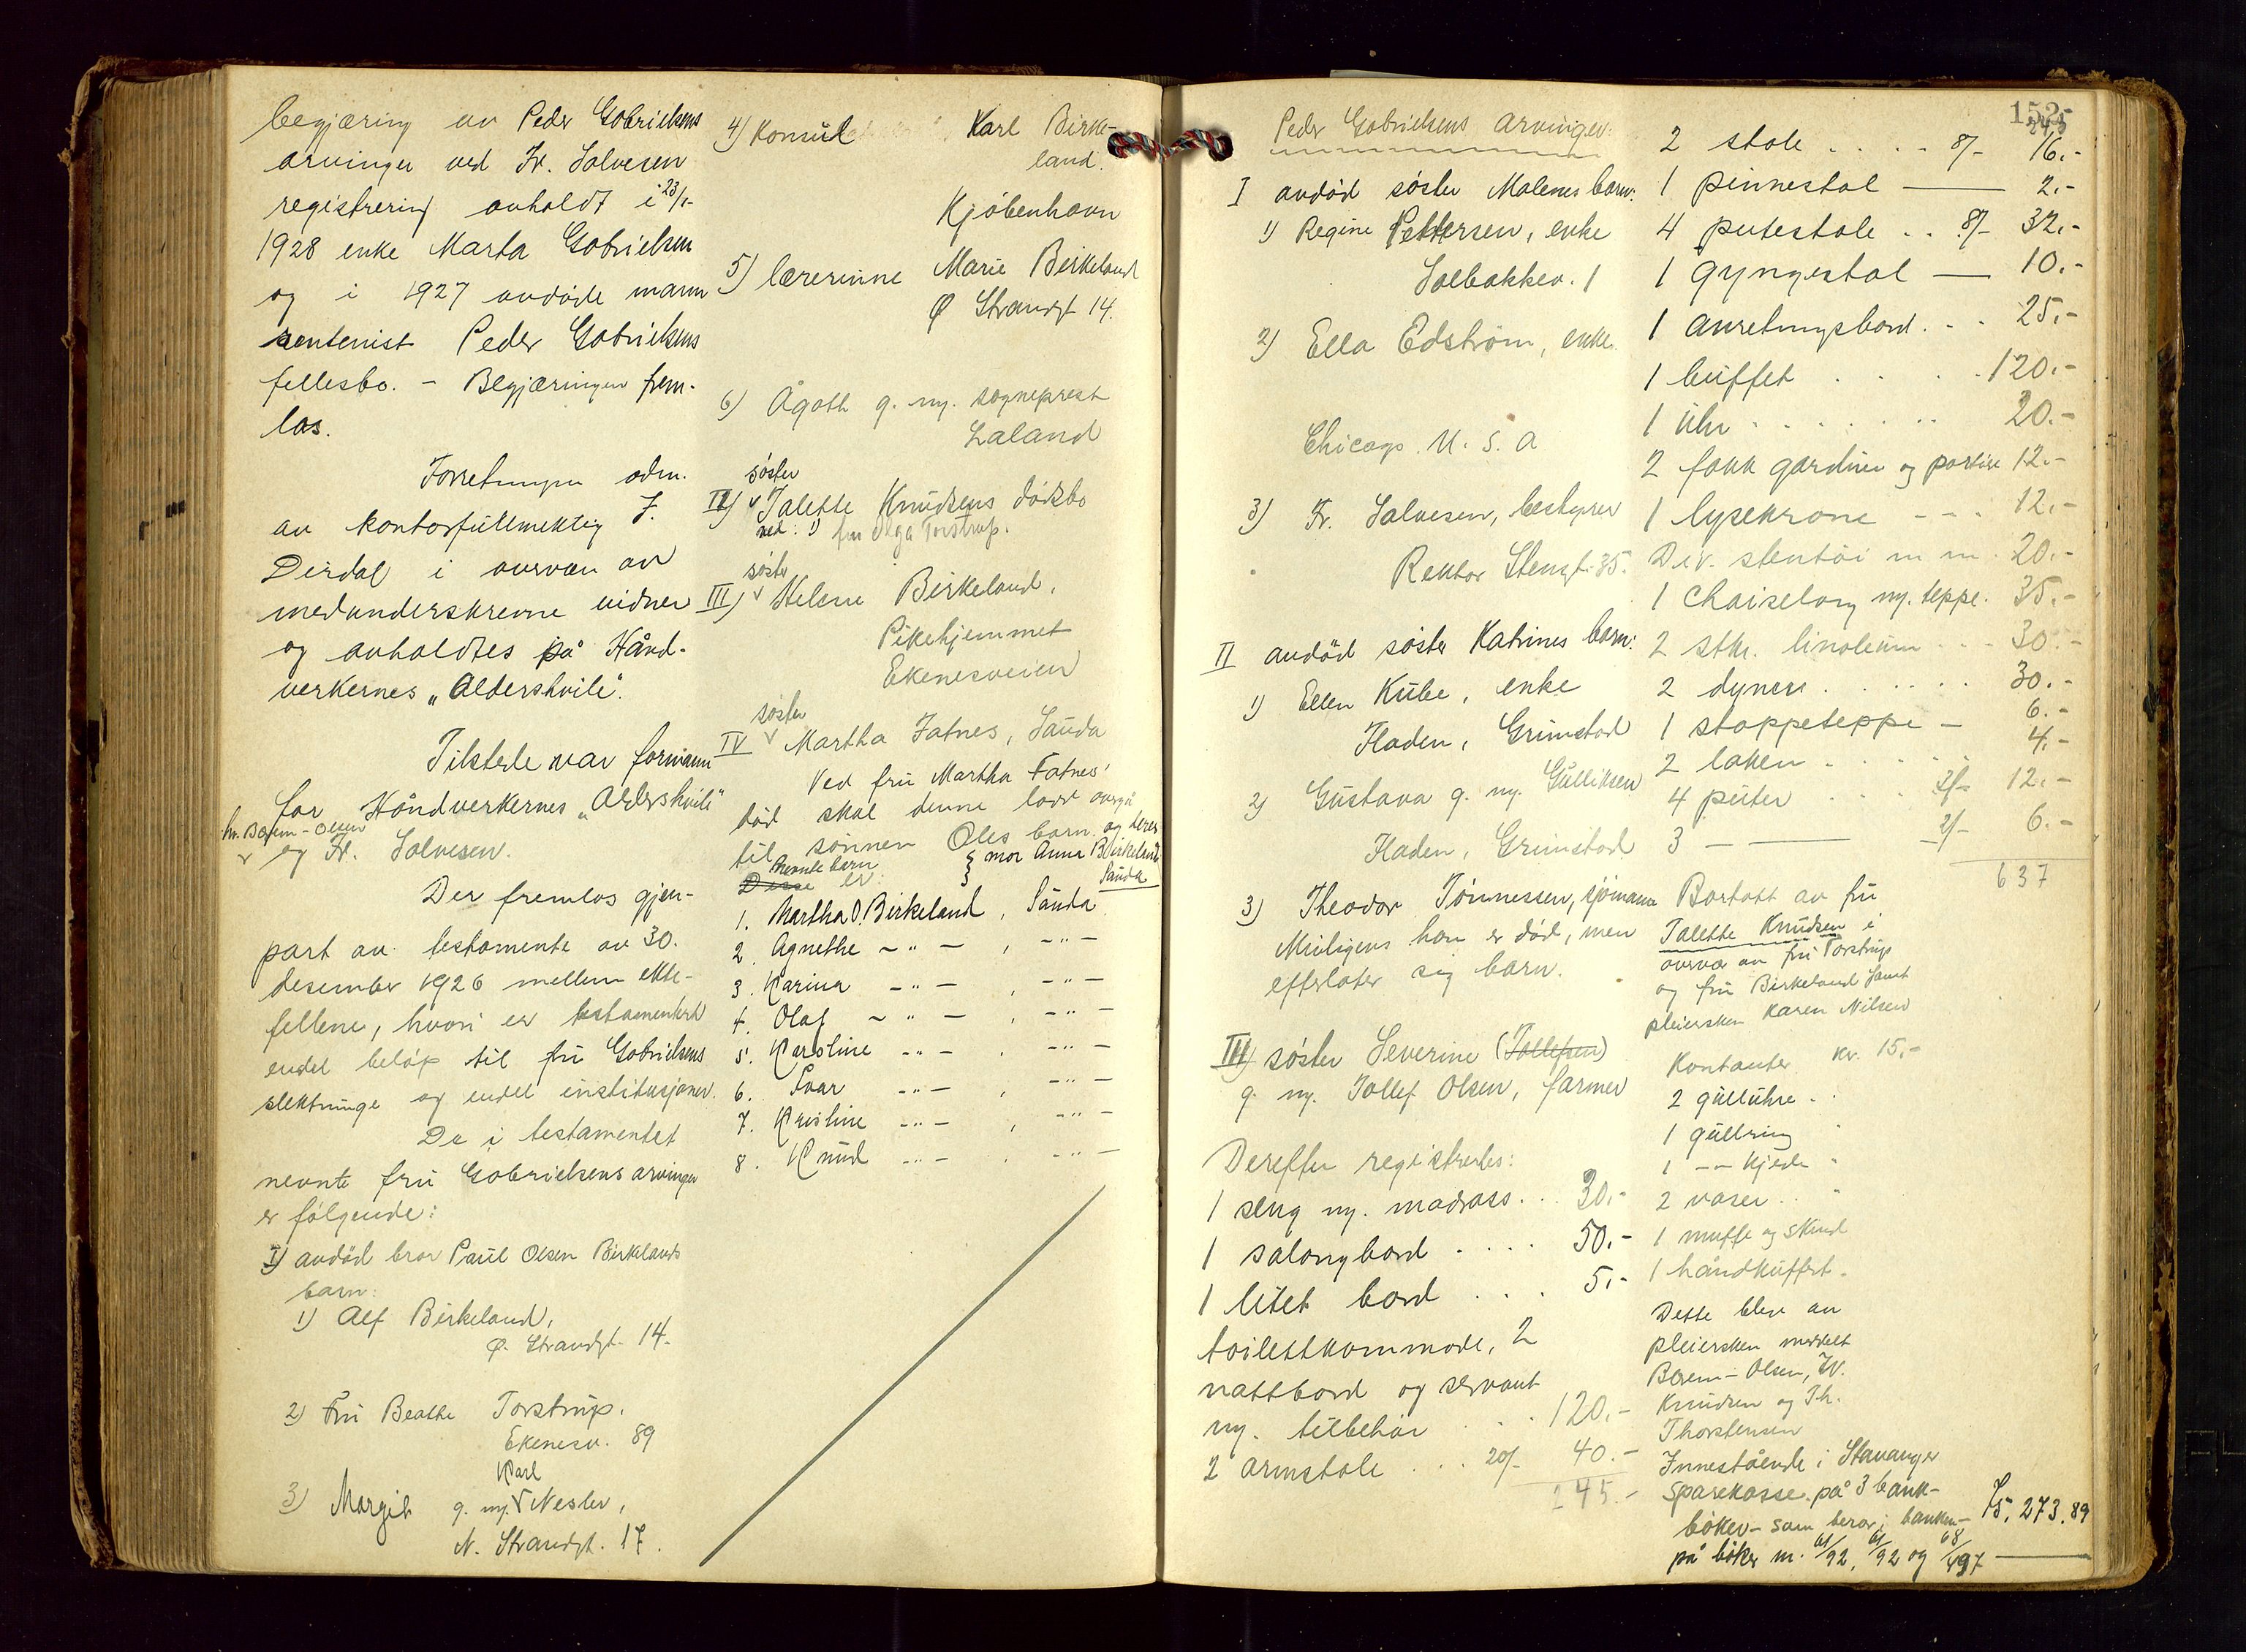 begjæring av Peder Gabrielsens
arvinger ved Fr. Salvesen
registrering avholdt i 23/1-
1928 enke Marta Gabrielsen
og i 1927 avdøde mann
rentenist Peder Gabrielsens
fellesbo. - Begjæringen frem-
las.
Forretningen adm.
av kontorfullmektig J.
Dirdal i overvær av
medunderskrevne vidner
og avholdtes på Hånd-
verkernes „Aldershvile".
Tilstede var formann
for Håndverkernes „Aldershvile"
hr. Borem-Olsen
og Fr. Salvesen.
Der fremlas gjen-
part av testamente av 30.
desember 1926 mellem ekte-
fellene, hvori er testamentert
endel beløp til fru Gabrielsens
slektninge og endel institusjoner.
De i testamentet
nevnte fru Gabrielsens arvinger
er følgende:
I) avdød bror Paul Olsen Birkelands
barn:
1) Alf Birkeland,
Ø. Strandgt. 14.
2) Fru Beathe Torstrup.
Ekenesv. 89
Karl
3) Margit g. m. Nesler,
N. Strandgt. 17.
4) Konsul Karl Birke-
land.
Kjøbenhavn
5) lærerinne Marie Birkeland
Ø Strandgt 14.
6) Ågoth g. m. sogneprest
Laland
søster
II) Talette Knudsens dødsbo
ved: 1) fru Olga Torstrup.
søster
III) Helene Birkeland,
Pikehjemmet
Ekenesveien
søster
IV Martha Fatnes, Sauda
Ved fru Martha Fatnes'
død skal denne lodd overgå
til sønnen Oles barn og deres
mor Anna Birkeland
Sauda
Nevnte barn
Disse er:
1. Martha O. Birkeland, Sauda
2. Agnethe - " - , - " -
3. Karina - " - , - " -
4. Olaf - " - , - " -
5. Karoline - " - , - " -
6. Ivar - " - , - " -
7. Kristine - " - , - " -
8. Knud - " - , - " -
152
Peder Gabrielsens arvinger:
I avdød søster Malenes barn:
1) Regine Pettersen, enke
Solbakkev. 1
2) Ella Edstrøm, enke
Chicago. U. S. A
3) Fr. Salvesen, bestyrer
Rektor Stengt. 35.
II avdød søster Katrines barn:
1) Ellen Kube, enke
Fladen, Grimstad
2) Gustava g. m. Gulliksen
Fladen, Grimstad
3) Theodor Tønnessen, sjømann
Muligens han er død, men
efterlater sig barn.
III) søster Severine (Tollefsen)
g. m. Tollef Olsen, farmer
Derefter registrertes:
1 seng m. madrass . . 30.-
1 salongbord . . . . 50.-
1 litet bord . . . 5.-
toilettkommode, 2
nattbord og servant
m. tilbehør . . . 120.-
2 armstole . . . 20/- 40.-
245.-
245
2 stole . . . . 8/- 16.-
1 pinnestol — 2.-
4 putestole . . 8/- 32.-
1 gyngestol — 10.-
1 anretningsbord . . . 25.-
1 buffet . . . . 120.-
1 uhr . . . . . . 20.-
2 fakk gardiner og portiere 12.-
1 lysekrone - - - 12.-
Div. stentøi m m . 20.-
1 Chaiselong m. teppe. 35.-
2 stkr. linoleum . . . 30.-
2 dyner . . . . . . 30.-
1 stoppeteppe - 6.-
2 laken . . . . . 4.-
4 puter . . . 3/- 12.-
3 — 2/- 6.-
637
Bortatt av fru
Talette Knudsen i
overvær av fru Torstrup
og fru Birkeland samt
pleiersken Karen Nilsen
Kontanter kr. 15.-
2 gulluhre . .
1 gullring "
1 -"- kjede "
2 vaser . . "
1 muffe og skind
1 håndkuffert.
Dette blev av
pleiersken meddelt
Borem-Olsen, Fr.
Knudsen og Th.
Thorstensen
Innestående i Stavanger
Sparekasse på 3 bank-
bøker - som beror i banken - 75,273.89
på bøker nr. 61/92, 61/92 og 68/497 —